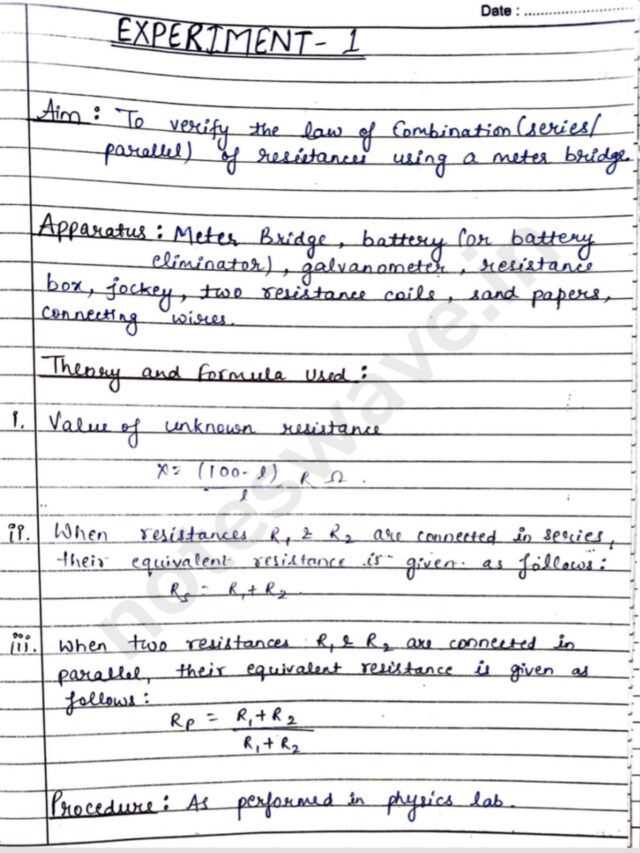 Date : ......................
EXPERIMENT- 1
Aim : To verify the law of Combination (series/
parallel) of resistances using a meter bridge.
Apparatus : Meter Bridge, battery (or battery
eliminator), galvanometer, resistance
box, jockey, two resistance coils, sand papers,
connecting wires.
Theory and formula used :
i. Value of unknown resistance
x = (100-l)/l R Ω.
ii. When resistances R₁ & R₂ are connected in series,
their equivalent resistance is given as follows :
Rs = R₁ + R₂.
iii. When two resistances R₁ & R₂ are connected in
parallel, their equivalent resistance is given as
follows :
Rp = R₁ + R₂
R₁ + R₂
Procedure : As performed in physics lab.
noteswave.in